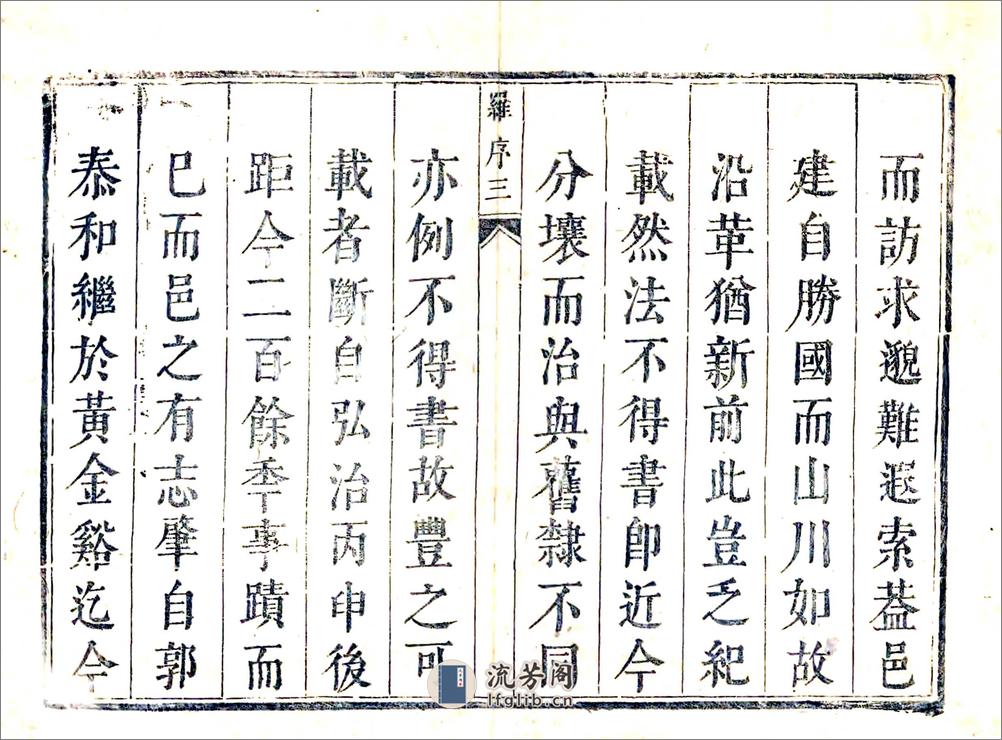 而訪求邈難遐索葢邑
建自勝國而山川如故
沿革猶新前此豈乏紀
載然法不得書即近今
分壤而治與舊隸不同
羅序三
亦例不得書故豐之可
載者斷自弘治丙申後
距今二百餘秊事蹟而
巳而邑之有志肇自郭
泰和繼於黃金谿迄今
流芳阁
lfglib.cn